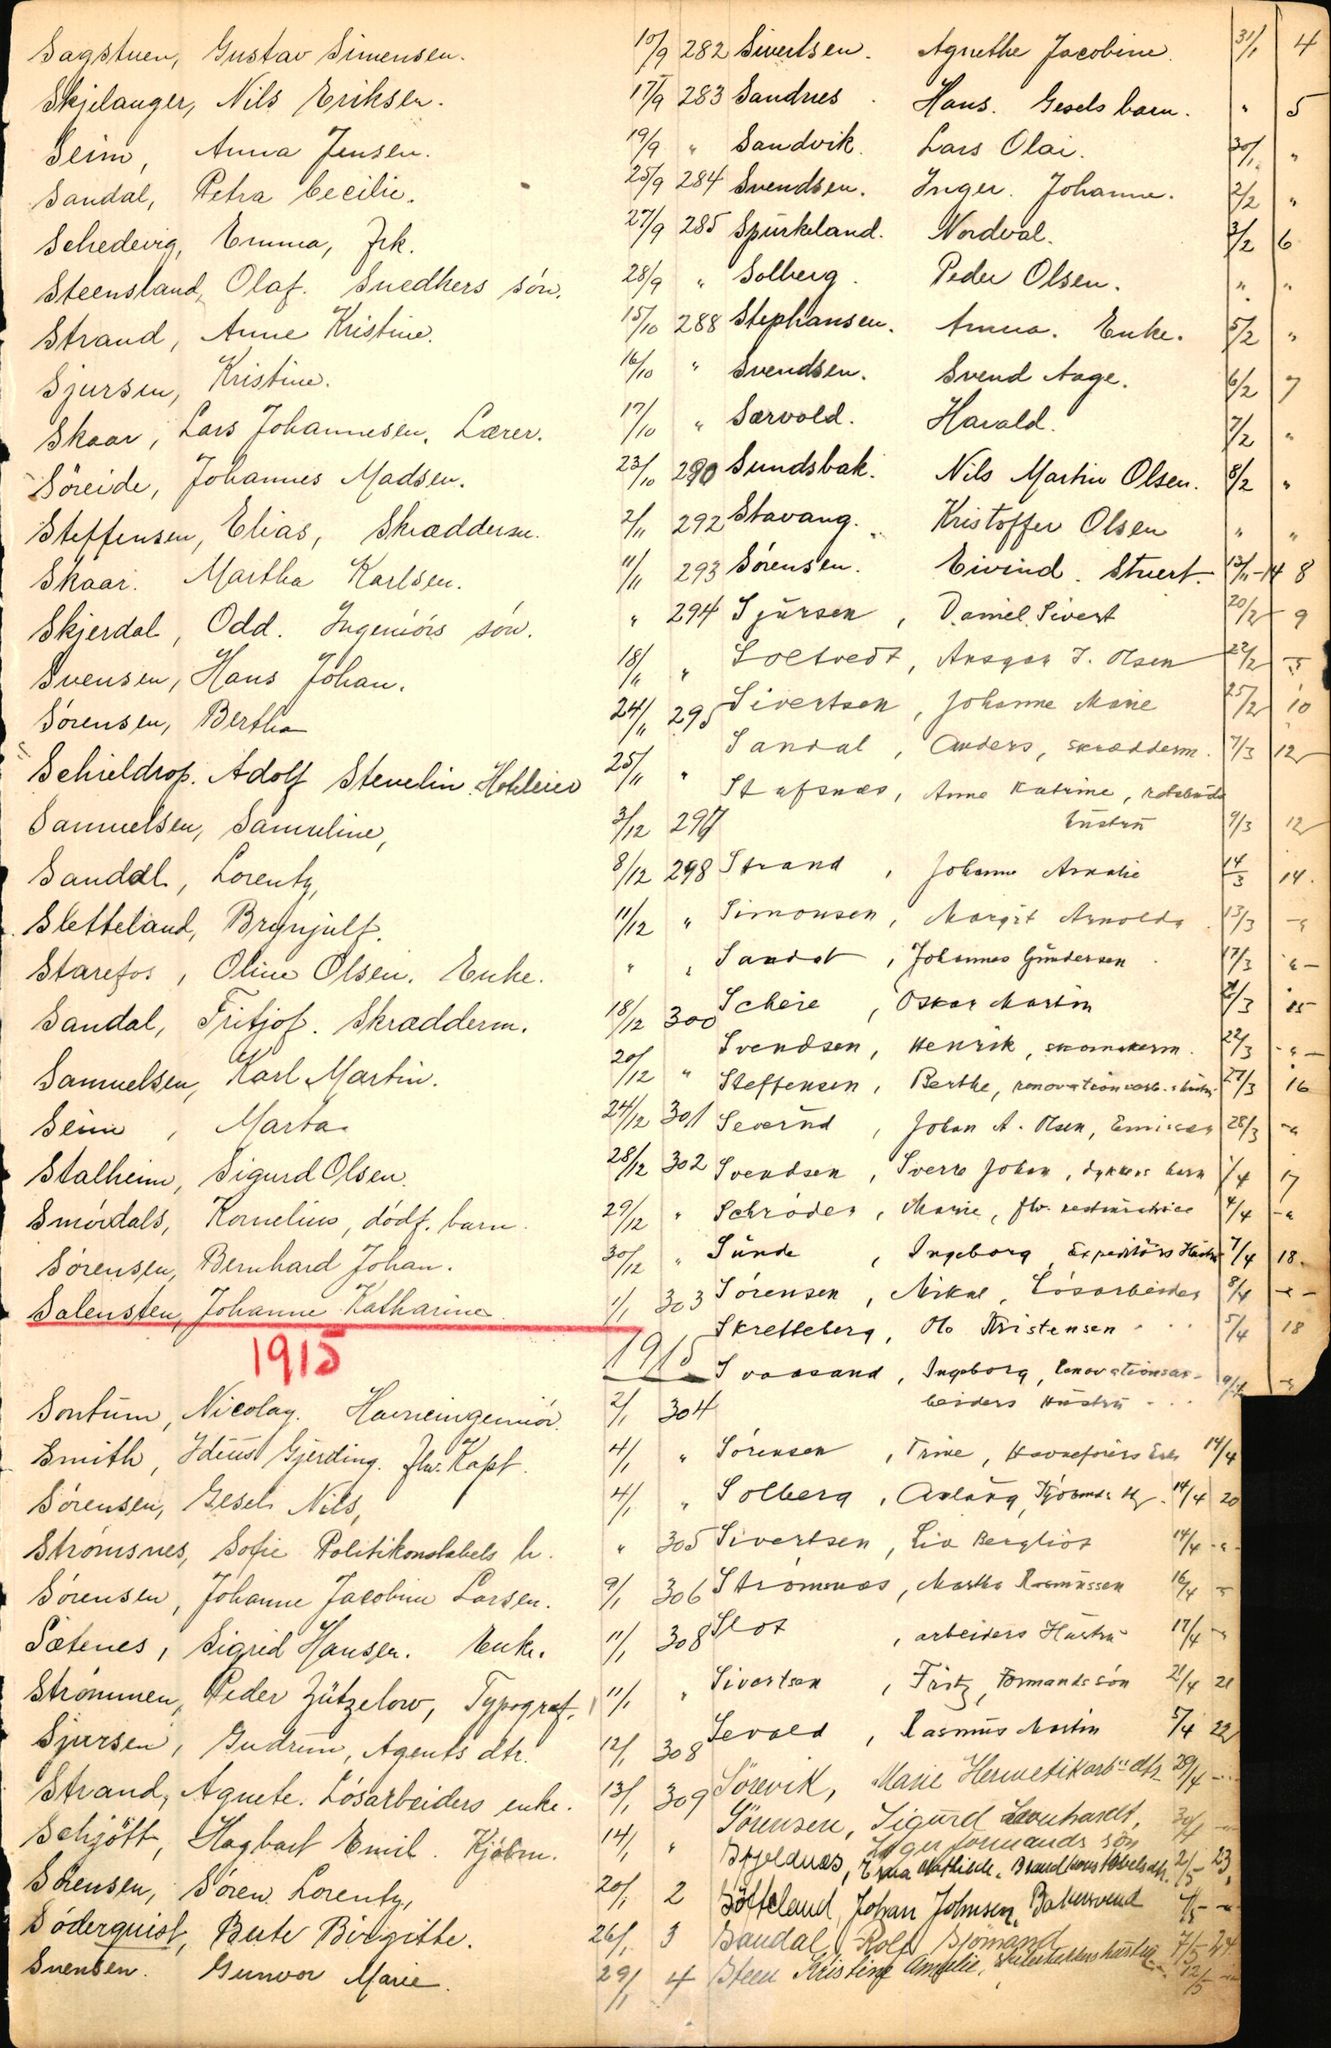 Sagstuen, Gustav Simensen. 10/9 282
Skjelanger, Nils Eriksen. 17/9 283
Seim, Anna Jensen. 19/9 "
Sandal, Petra Cecilie. 25/9 284
Schedevig, Emma, Frk. 27/9 285
Steensland, Olaf. Snedkers søn. 28/9 "
Strand, Anne Kristine. 15/10 288
Sjursen, Kristine. 16/10 "
Skaar, Lars Johannesen, Lærer. 17/10 "
Söreide, Johannes Madsen. 23/10 290
Steffensen, Elias, Skrædderm. 2/11 292
Skaar. Martha Karlsen. 11/11 293
Skjerdal, Odd. Ingeniörs sön. " 294
Svensen, Hans Johan. 18/11 "
Sørensen, Bertha 24/11 295
Schieldrop. Adolf Stenelin. 25/11 "
Samuelsen, Samuline, 3/12 297
Sandal, Lorentz, 8/12 298
Sletteland, Brynjulf. 11/12 "
Starefos, Oline Olsen. Enke. " "
Sandal, Fritjof. Skrædderm. 18/12 300
Samuelsen, Karl Martin. 20/12 "
Seim, Marta 24/12 301
Stalheim, Sigurd Olsen. 28/12 302
Smördals, Kornelius, dödf. barn. 29/12 "
Sørensen, Bernhard Johan. 30/12 "
Salensten, Johanne Katharine 1/1 303
1915 1915
Sontum, Nicolay. Havneingeniör 2/1 304
Smith, Gjerding. fhv. Kapt. 4/1 "
Sörensen, Gesel Nils, 4/1 "
Strömsnes, Sofie Politikonstabels h. " 305
Sörensen, Johanne Jacobine Larsen. 9/1 306
Sætenes, Sigrid Hansen. Enke. 11/1 308
Strömmen, Peder Lützelow, Typograf. 11/1 "
Sjursen, Gudrun, Agents dtr. 12/1 308
Strand, Agnete. Lösarbeiders enke. 13/1 309
Schjött, Hagbart Emil. Kjöbm. 14/1 "
Sörensen, Sören Lorentz, 20/1 2
Söderquist, Berte Birgitte. 26/1 3
Svensen. Gunvor Marie. 29/1 4
Sivertsen. Agnethe Jacobine. 31/1 4
Sandnes. Hans. Gesels barn. " 5
Sandvik. Lars Olai. 30/1 "
Svendsen. Inger. Johanne. 2/2 "
Spurkeland. Nordval. 3/2 6
Solberg. Peder Olsen. " "
Stephansen. Anna. Enke. 5/2 "
Svendsen. Svend Aage. 6/2 7
Særvold. Harald. 7/2 "
Sundsbak. Nils Martin Olsen. 8/2 "
Stavang. Kristoffer Olsen " "
Sørensen. Eivind. Stuert. 13/11-14 8
Sjursen, Daniel Sivert 20/2 9
Soltvedt, Ansgar J. Olsen 22/2
Sivertsen, Johanne Marie 25/2 10
Sandal, Anders, skrædderm. 7/3 12
Stafsnæs, Anne Katrine,
hustru 9/3 12
Strand, Johanne Amalie 14/3 14.
Simonsen, Margit Arnolda 13/3 "
Sandal, Johannes Gundersen 17/3 "
Scheie, Oskar Martin 21/3 15
Svendsen, Henrik, skomakerm. 22/3 "
Steffensen, Berthe, renovationsarb. hustru 27/3 16
Severud, Johan A. Olsen, 28/3 "
Svendsen, Sverre Johan, dykkers barn 1/4 17
Schröder, Marie, fhv. 4/4 "
Sunde, Ingeborg, Expeditörs Hustru 7/4 18.
Sørensen, Mikal, Lösarbeider 8/4 "
Skretteberg, Ole Kristensen 5/4 18
Svaasand, Ingeborg, Renovationsar-
beiders Hustru 9/4 "
Sörensen, Trine, Havneföiers Enke 14/4
Solberg, Aslaug, 14/4 20
Sivertsen, Liv Bergliot 14/4 "
Strömnæs, Martha Rasmussen 16/4 "
Slot, arbeiders Hustru 17/4 "
Sivertsen, Fritz, Formands sön 21/4 21
Sevold, Rasmus Martin 5/4 22
Sörevik, Marie Hermetikarb. dtr. 29/4 "
Sörensen, Sigurd Leonhardt,
Lagerformands sön 30/4 "
Erna Brandkonstabels dtr. 2/5 23
Sölteland, Johan Johnsen, Bakersvend 4/5 "
Sandal, Rolf Sjömand 7/5 24
Steen Kristine Amalie, 12/5 "